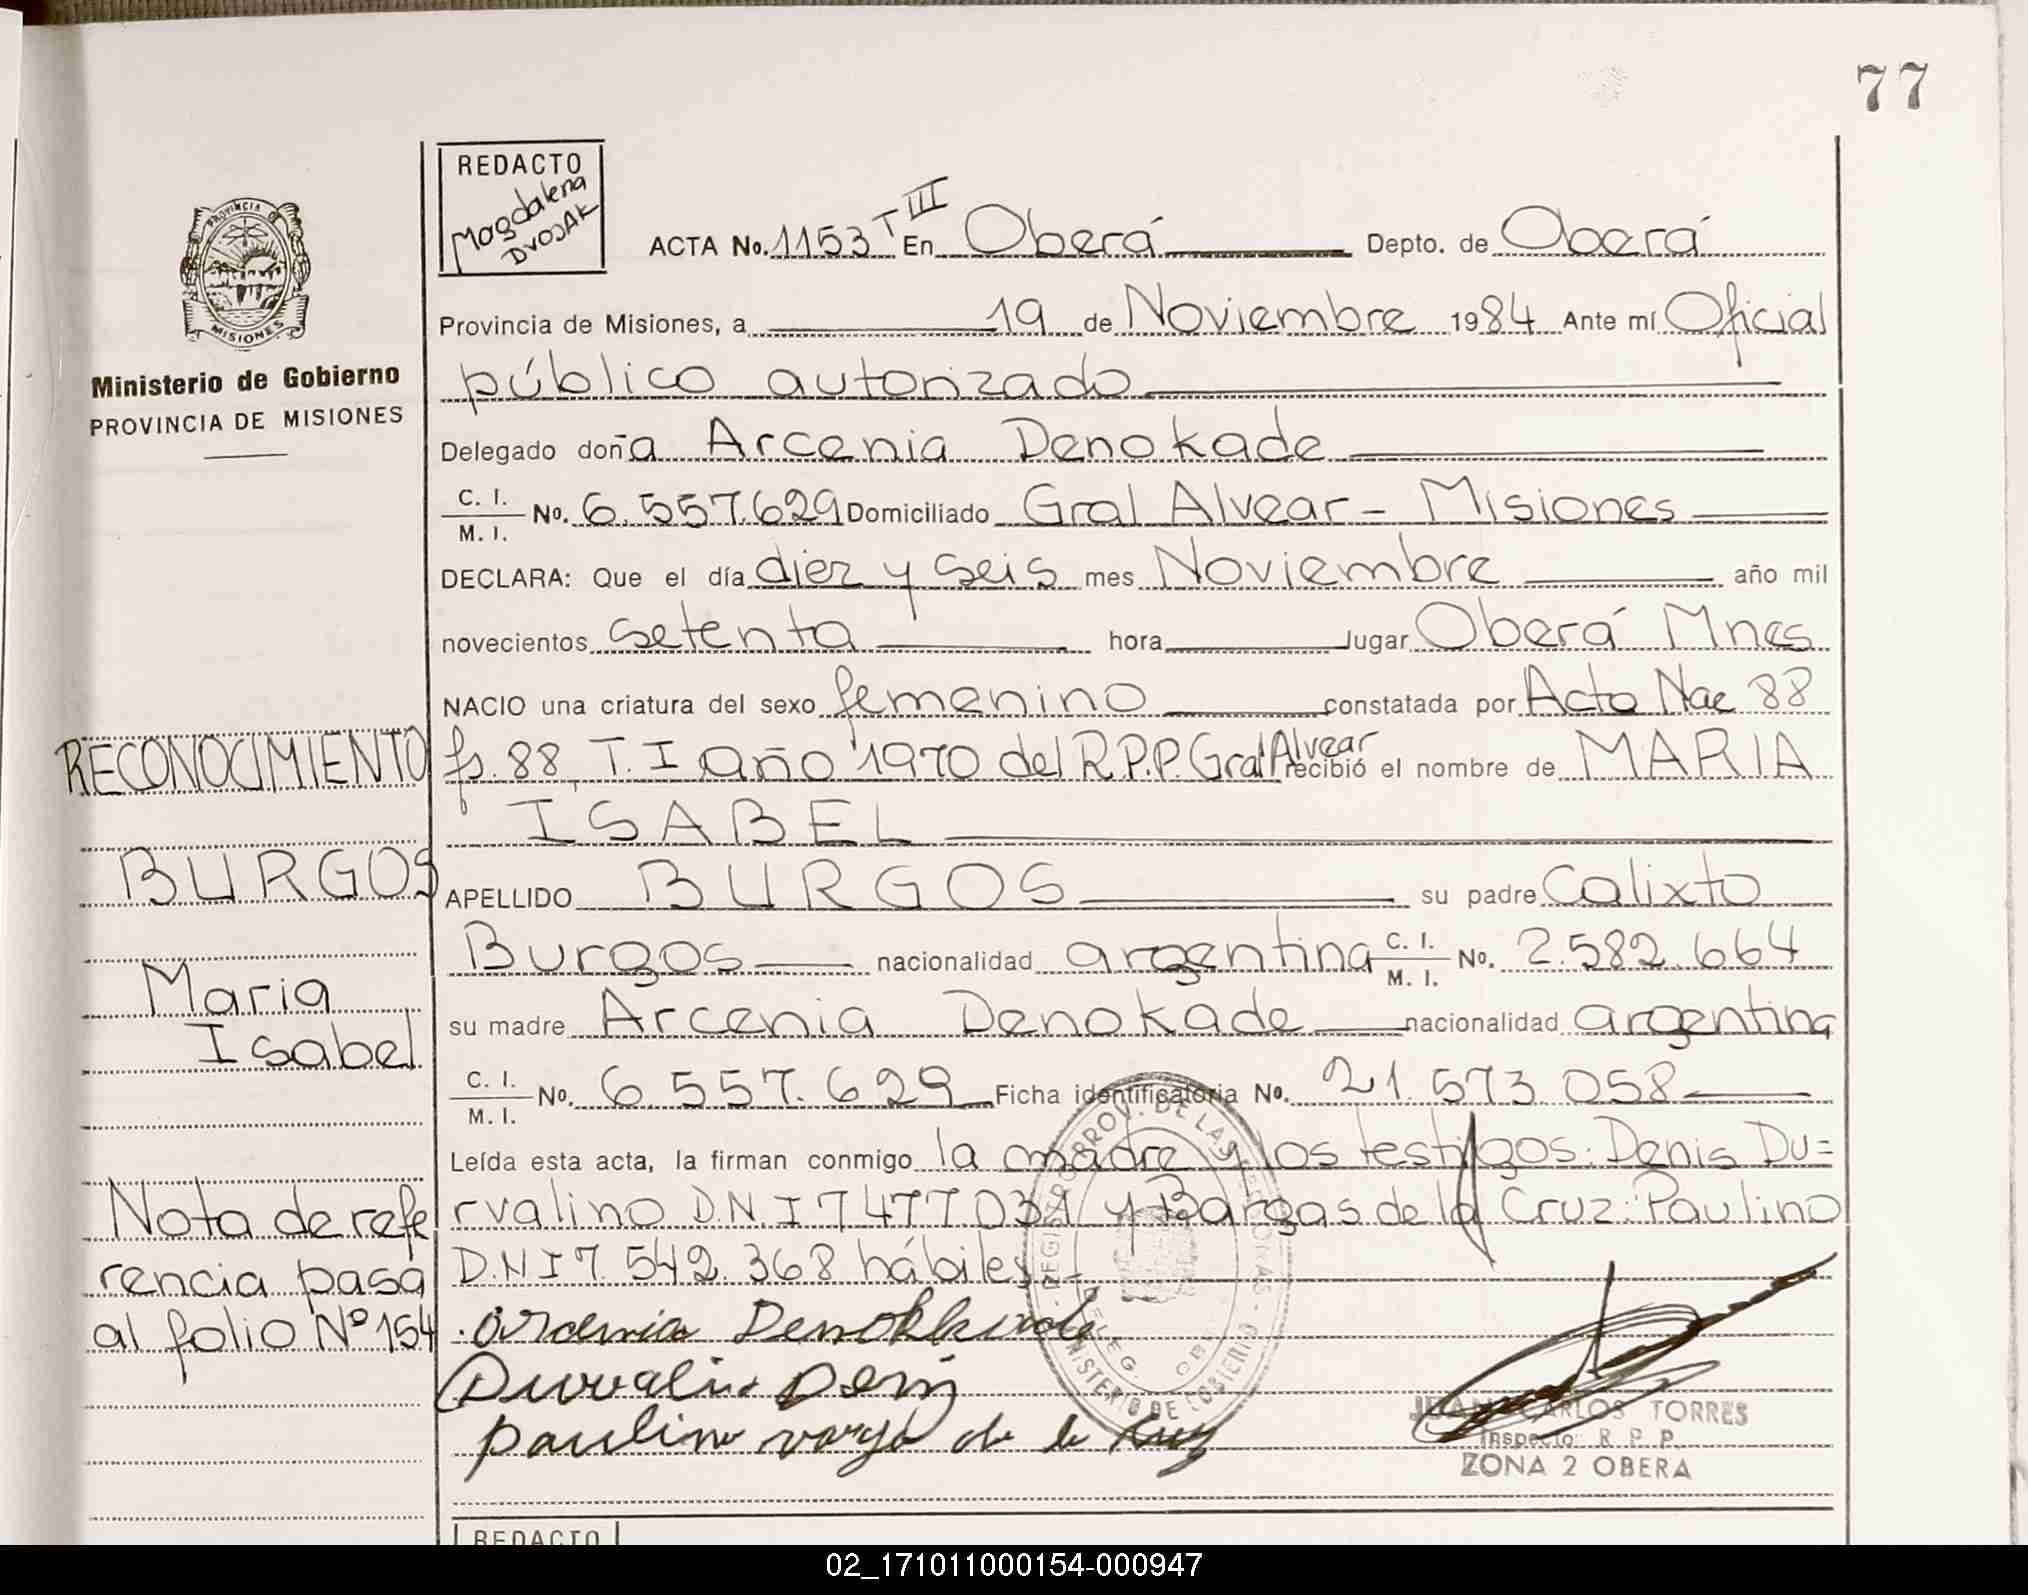 77
REDACTO
Magdalena
DVOJAK
PROVINCIA DE
MISIONES
Ministerio de Gobierno
PROVINCIA DE MISIONES
ACTA No. 1153 T III En Oberá Depto. de Oberá
Provincia de Misiones, a 19 de Noviembre 1984 Ante mí Oficial
público autorizado
Delegado doña Arcenia Denokade
C. I.
M. I. No. 6.557.629 Domiciliado Gral Alvear - Misiones
DECLARA: Que el día diez y seis mes Noviembre año mil
novecientos setenta hora lugar Oberá Mnes
NACIO una criatura del sexo femenino constatada por Acta Nac 88
fs. 88 T. I año 1970 del R.P.P. Gral Alvear recibió el nombre de MARIA
ISABEL
APELLIDO BURGOS su padre Calixto
Burgos nacionalidad argentina C. I. M. I. No. 2.582.664
su madre Arcenia Denokade nacionalidad argentina
C. I.
M. I. No. 6.557.629 Ficha identificatoria No. 21.573.058
Leída esta acta, la firman conmigo la madre y los testigos: Denis Du=
rvalino D.N.I 7477.031 y Bargas de la Cruz: Paulino
D.N.I 7.542.368 hábiles
RECONOCIMIENTO
BURGOS
Maria
Isabel
Nota de refe
rencia pasa
al folio Nº 154
REGISTRO PROV. DE LAS PERSONAS
MINISTERIO DE GOBIERNO
JUAN CARLOS TORRES
Inspector R. P. P.
ZONA 2 OBERA
REDACTO
02_171011000154-000947